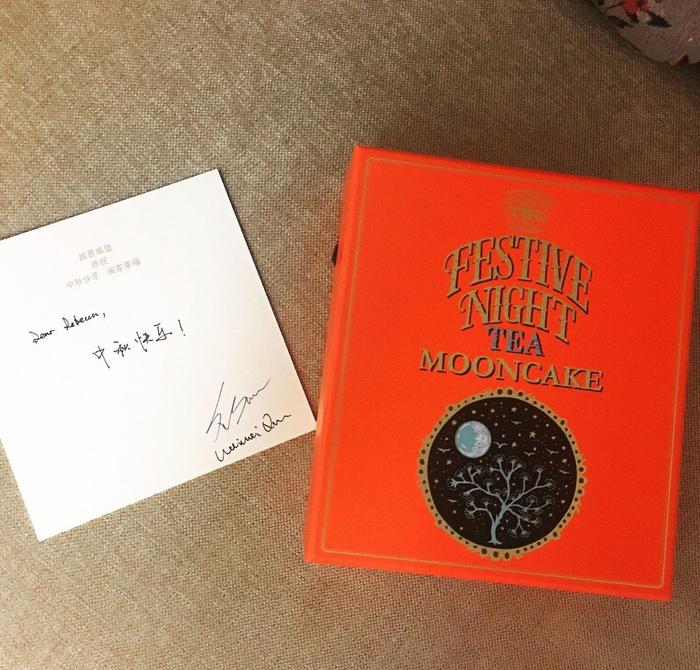 路易威登
恭祝
中秋快乐 阖家幸福
Dear Rebecca,
中秋快乐!
TWG
FESTIVE
NIGHT
TEA
MOONCAKE